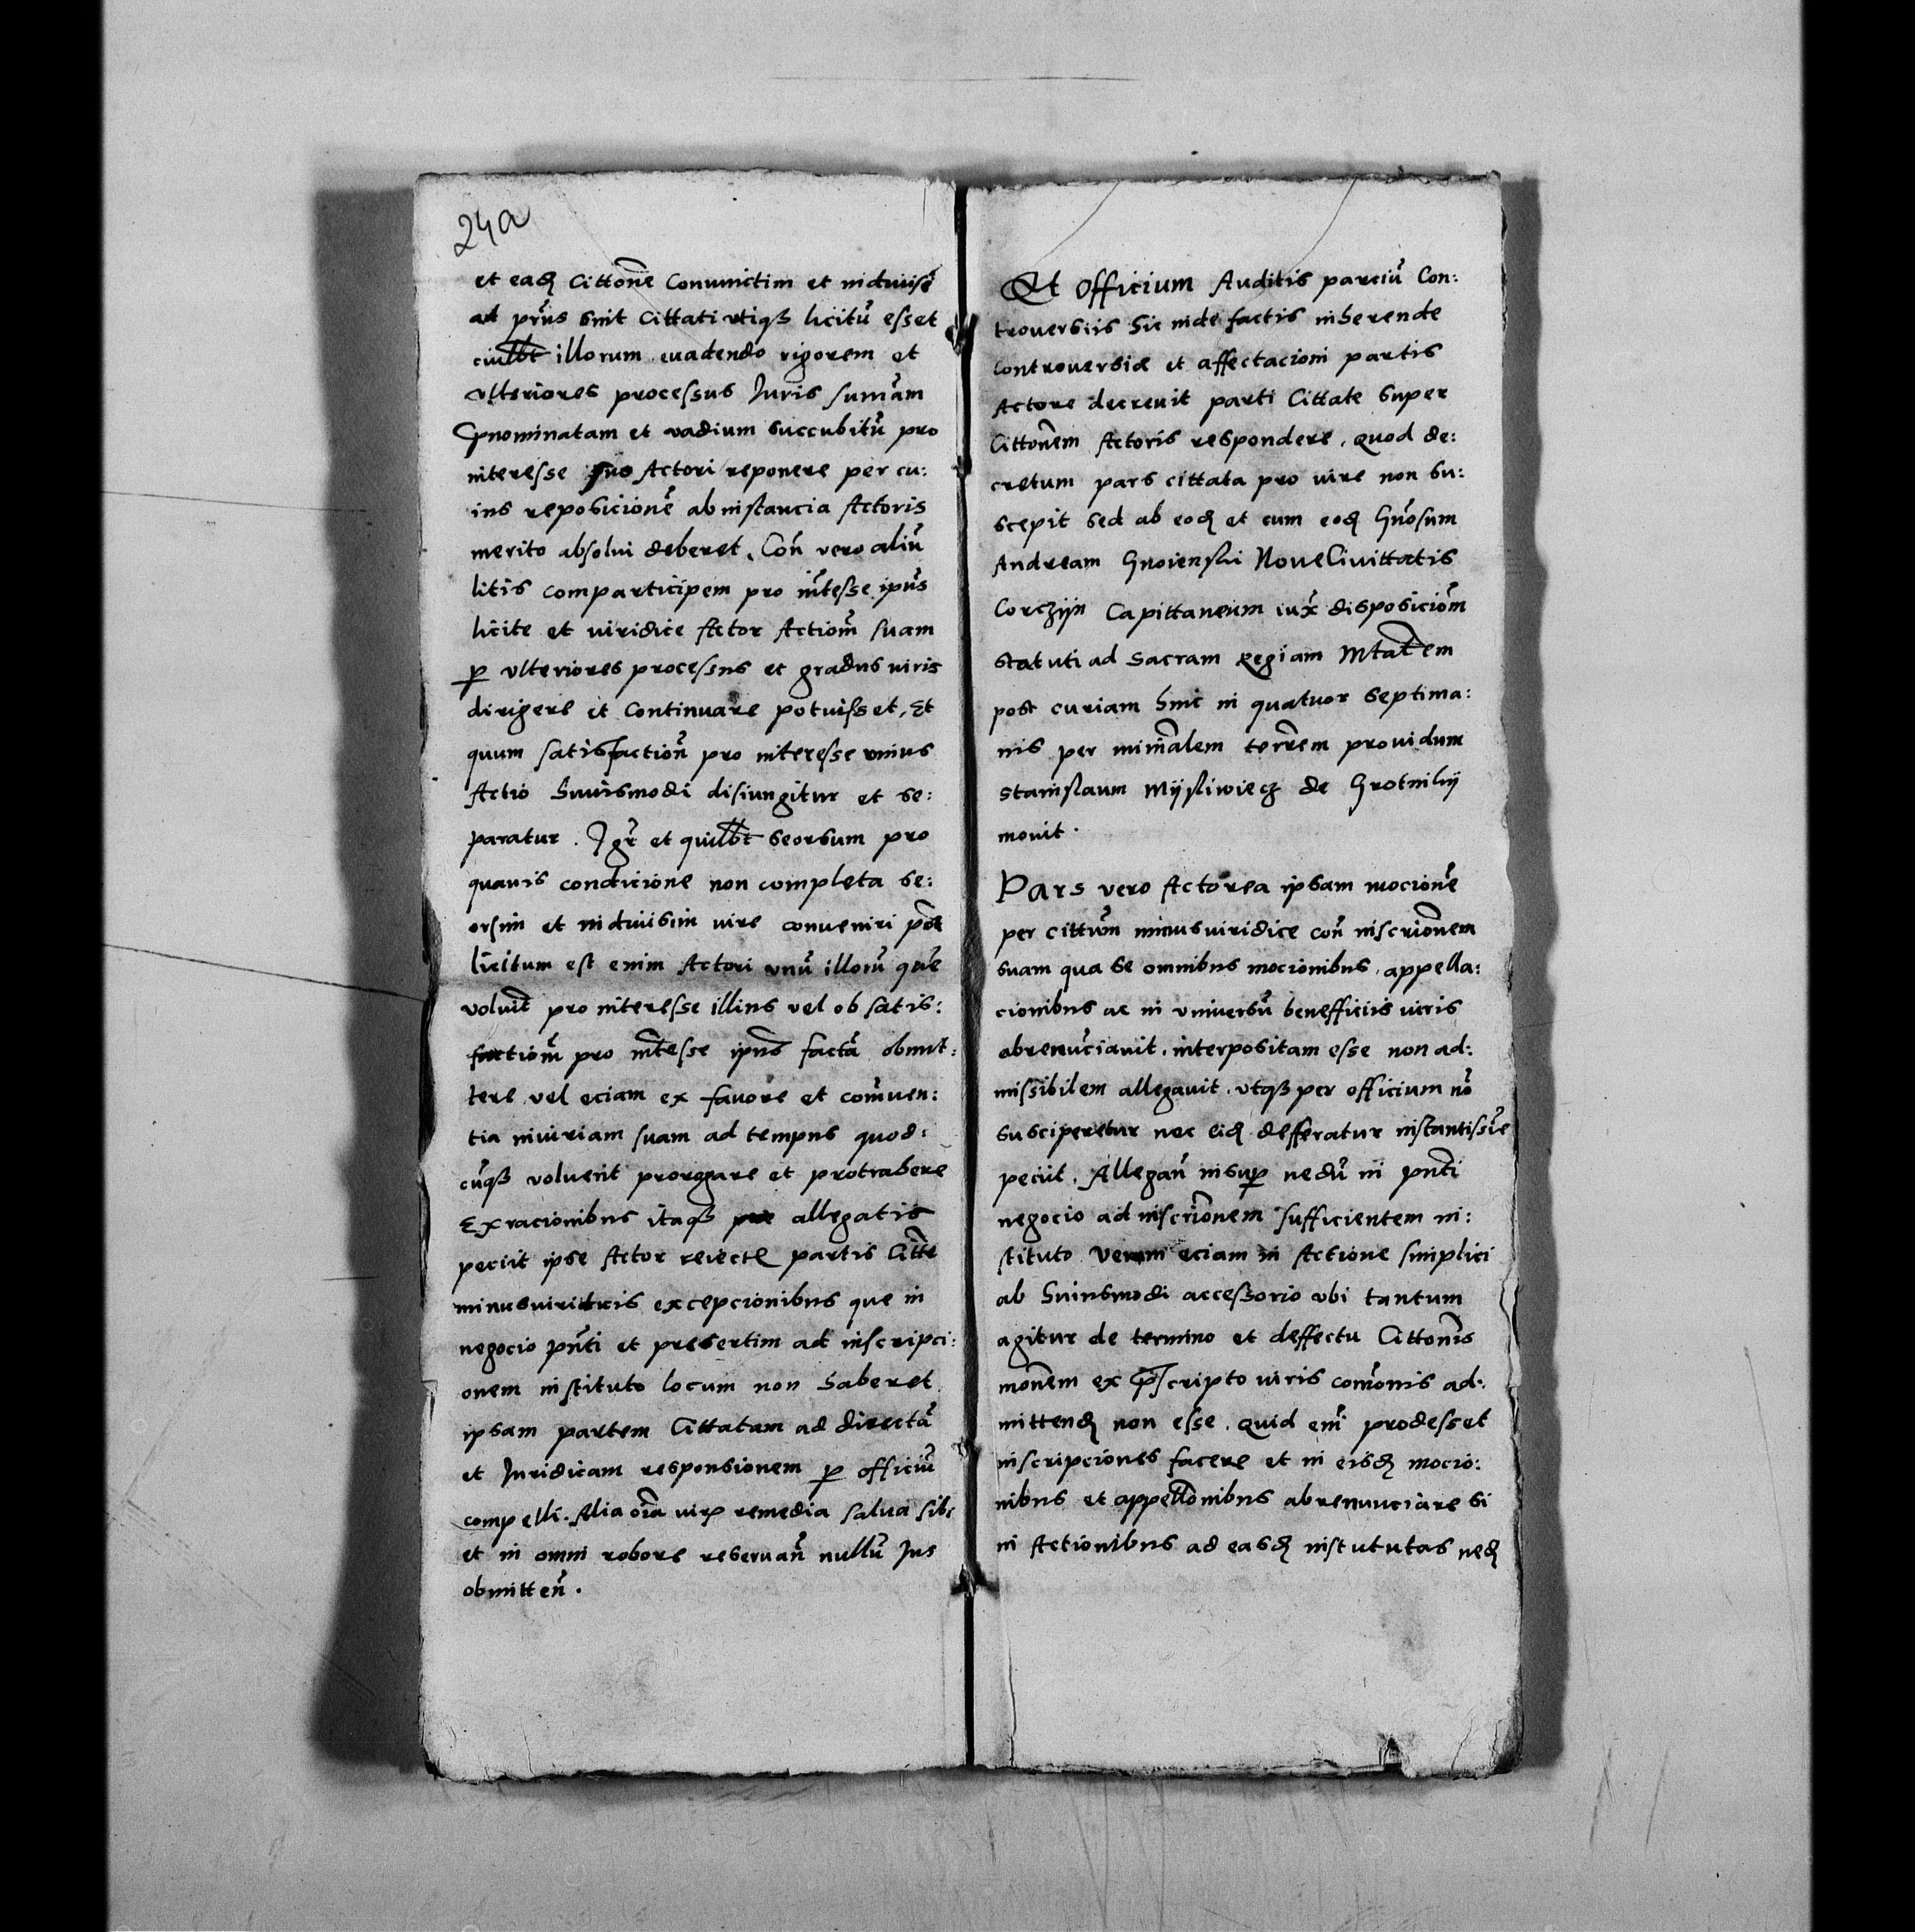 24a
et eadē Cittōne Coniunctim et indiuisī
ad prn̄s sint Cittati vtiqȝ licitū esset
cuilibt illorum euadendo rigorem et
vlteriores processus Juris sum̄am
Pnominatam et vadium succubitū pro
interesse suo Actori reponere per cu:
ius reposicionē ab instancia Actoris
merito absolui deberet, Con̄ vero aliū
litis comparticipem pro int̄esse ipiu̅s
licite et iuridice Actor Actiom̄ suam
ꝑ vlteriores processus et gradus iuris
dirigere et Continuare potuisset, Et
quum satisfaction̄ pro interesse vnius
Actio huiusmodi disiungitur et se:
paratur. Igr̄ et quilibt seorsum pro
quauis condicione non completa se:
orsim et indiuisim iure conueniri pōt
licitum est enim Actori vnū illorū quē
voluit pro interesse illius vel ob satis:
factiom̄ pro int̄esse ipiu̅s factā obmit:
tere vel eciam ex fauore et com̄uen:
tia iniuriam suam ad tempus quod:
cūqȝ voluerit prorogare et protrahere
Ex racionibus itaqȝ allegatis
peciit ipse Actor reiecte partis Citt̄e
minus iuridicis excepcionibus que in
negocio pn̄ti et presertim ad inscripci:
onem instituto locum non haberet
ipsam partem Cittatam ad directā
et Juridicam responsionem ꝑ officiū
compelli. Alia oīa iurꝝ remedia salua sibi
et in omni robore reseruan̄ nullū Jus
obmitten̄.
Et Officium Auditis parciū Con:
trouersiis hic inde factis inherende
Controuersie et affectacioni partis
Actore decreuit parti Cittate super
Cittonē̄m Actoris respondere, quod de:
cretum pars cittata pro iure non su:
scepit sed ab eodē et cum eodē Gn̄osum
Andream Gnoienski Noue Ciuittatis
Corczÿn Capittaneum iux̄ disposiciom̄
statuti ad Sacram Regiam Mtat̄em
post curiam hinc in quatuor septima:
nis per min̄alem terrēm prouidum
stanislaum Mÿsliwiecz de Grotnikÿ
mouit.
Pars vero Actorea ipsam mocionē
per cittū̄m minus iuridice con̄ inscriōnem
suam qua se omnibus mocionibus, appella:
cionibus ac in vniuersū benefficiis iuris
abrenun̄ciauit, interpositam esse non ad:
missibilem allegauit, vtqȝ per officium nō
susciperetur nec eidē defferatur instantissīe
peciit, Allegan̄ insuꝑ nedū in pn̄ti
negocio ad inscriōnem sufficientem in:
stituto verum eciam in Actione simplici
ab huiusmodi accessorio vbi tantum
agitur de termino et deffectu Cittonīs
monē̄m ex p̄scripto iuris com̄onis ad:
mittendē non esse, quid enī prodesset
inscripciones facere et in eisdē mocio:
nibus et appellōnibus abrenunciare si
in Actionibus ad easdē institutas nedē